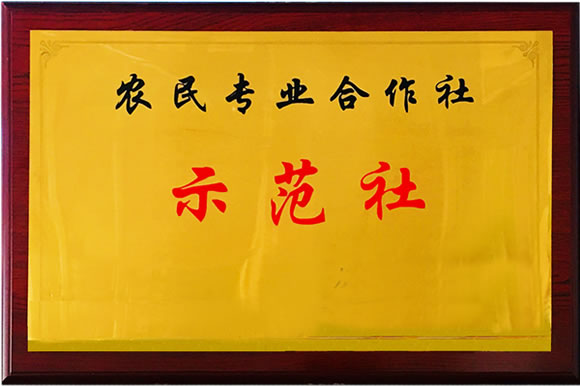 农民专业合作社
示范社